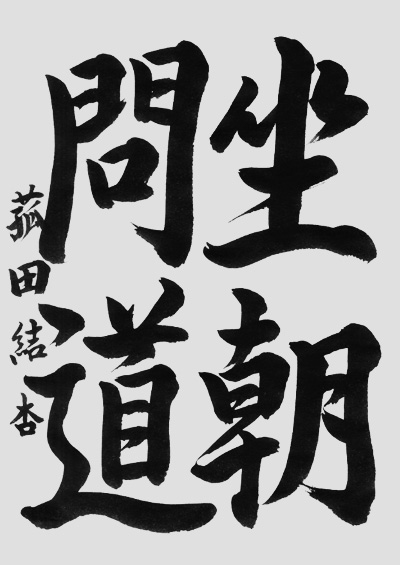 坐朝
問道
菰田結杏